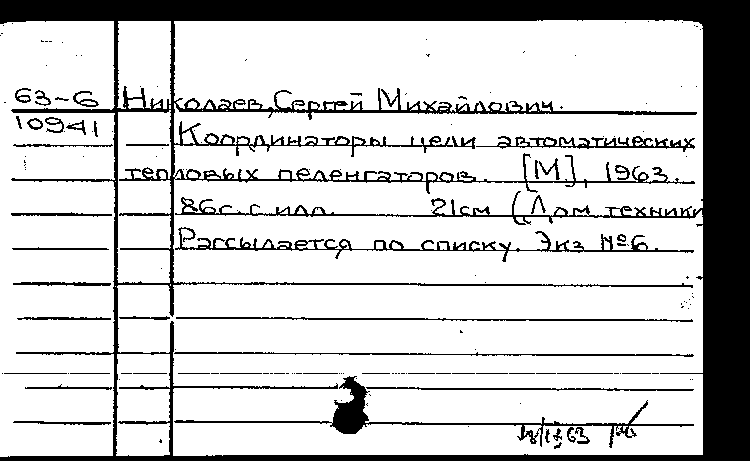 63-6 Николаев, Сергей Михайлович.
10941 Координаторы цели автоматических
тепловых пеленгаторов. [М], 1963.
86с. с илл. 21см (Дом техники
Рассылается по списку. Экз №6.
63